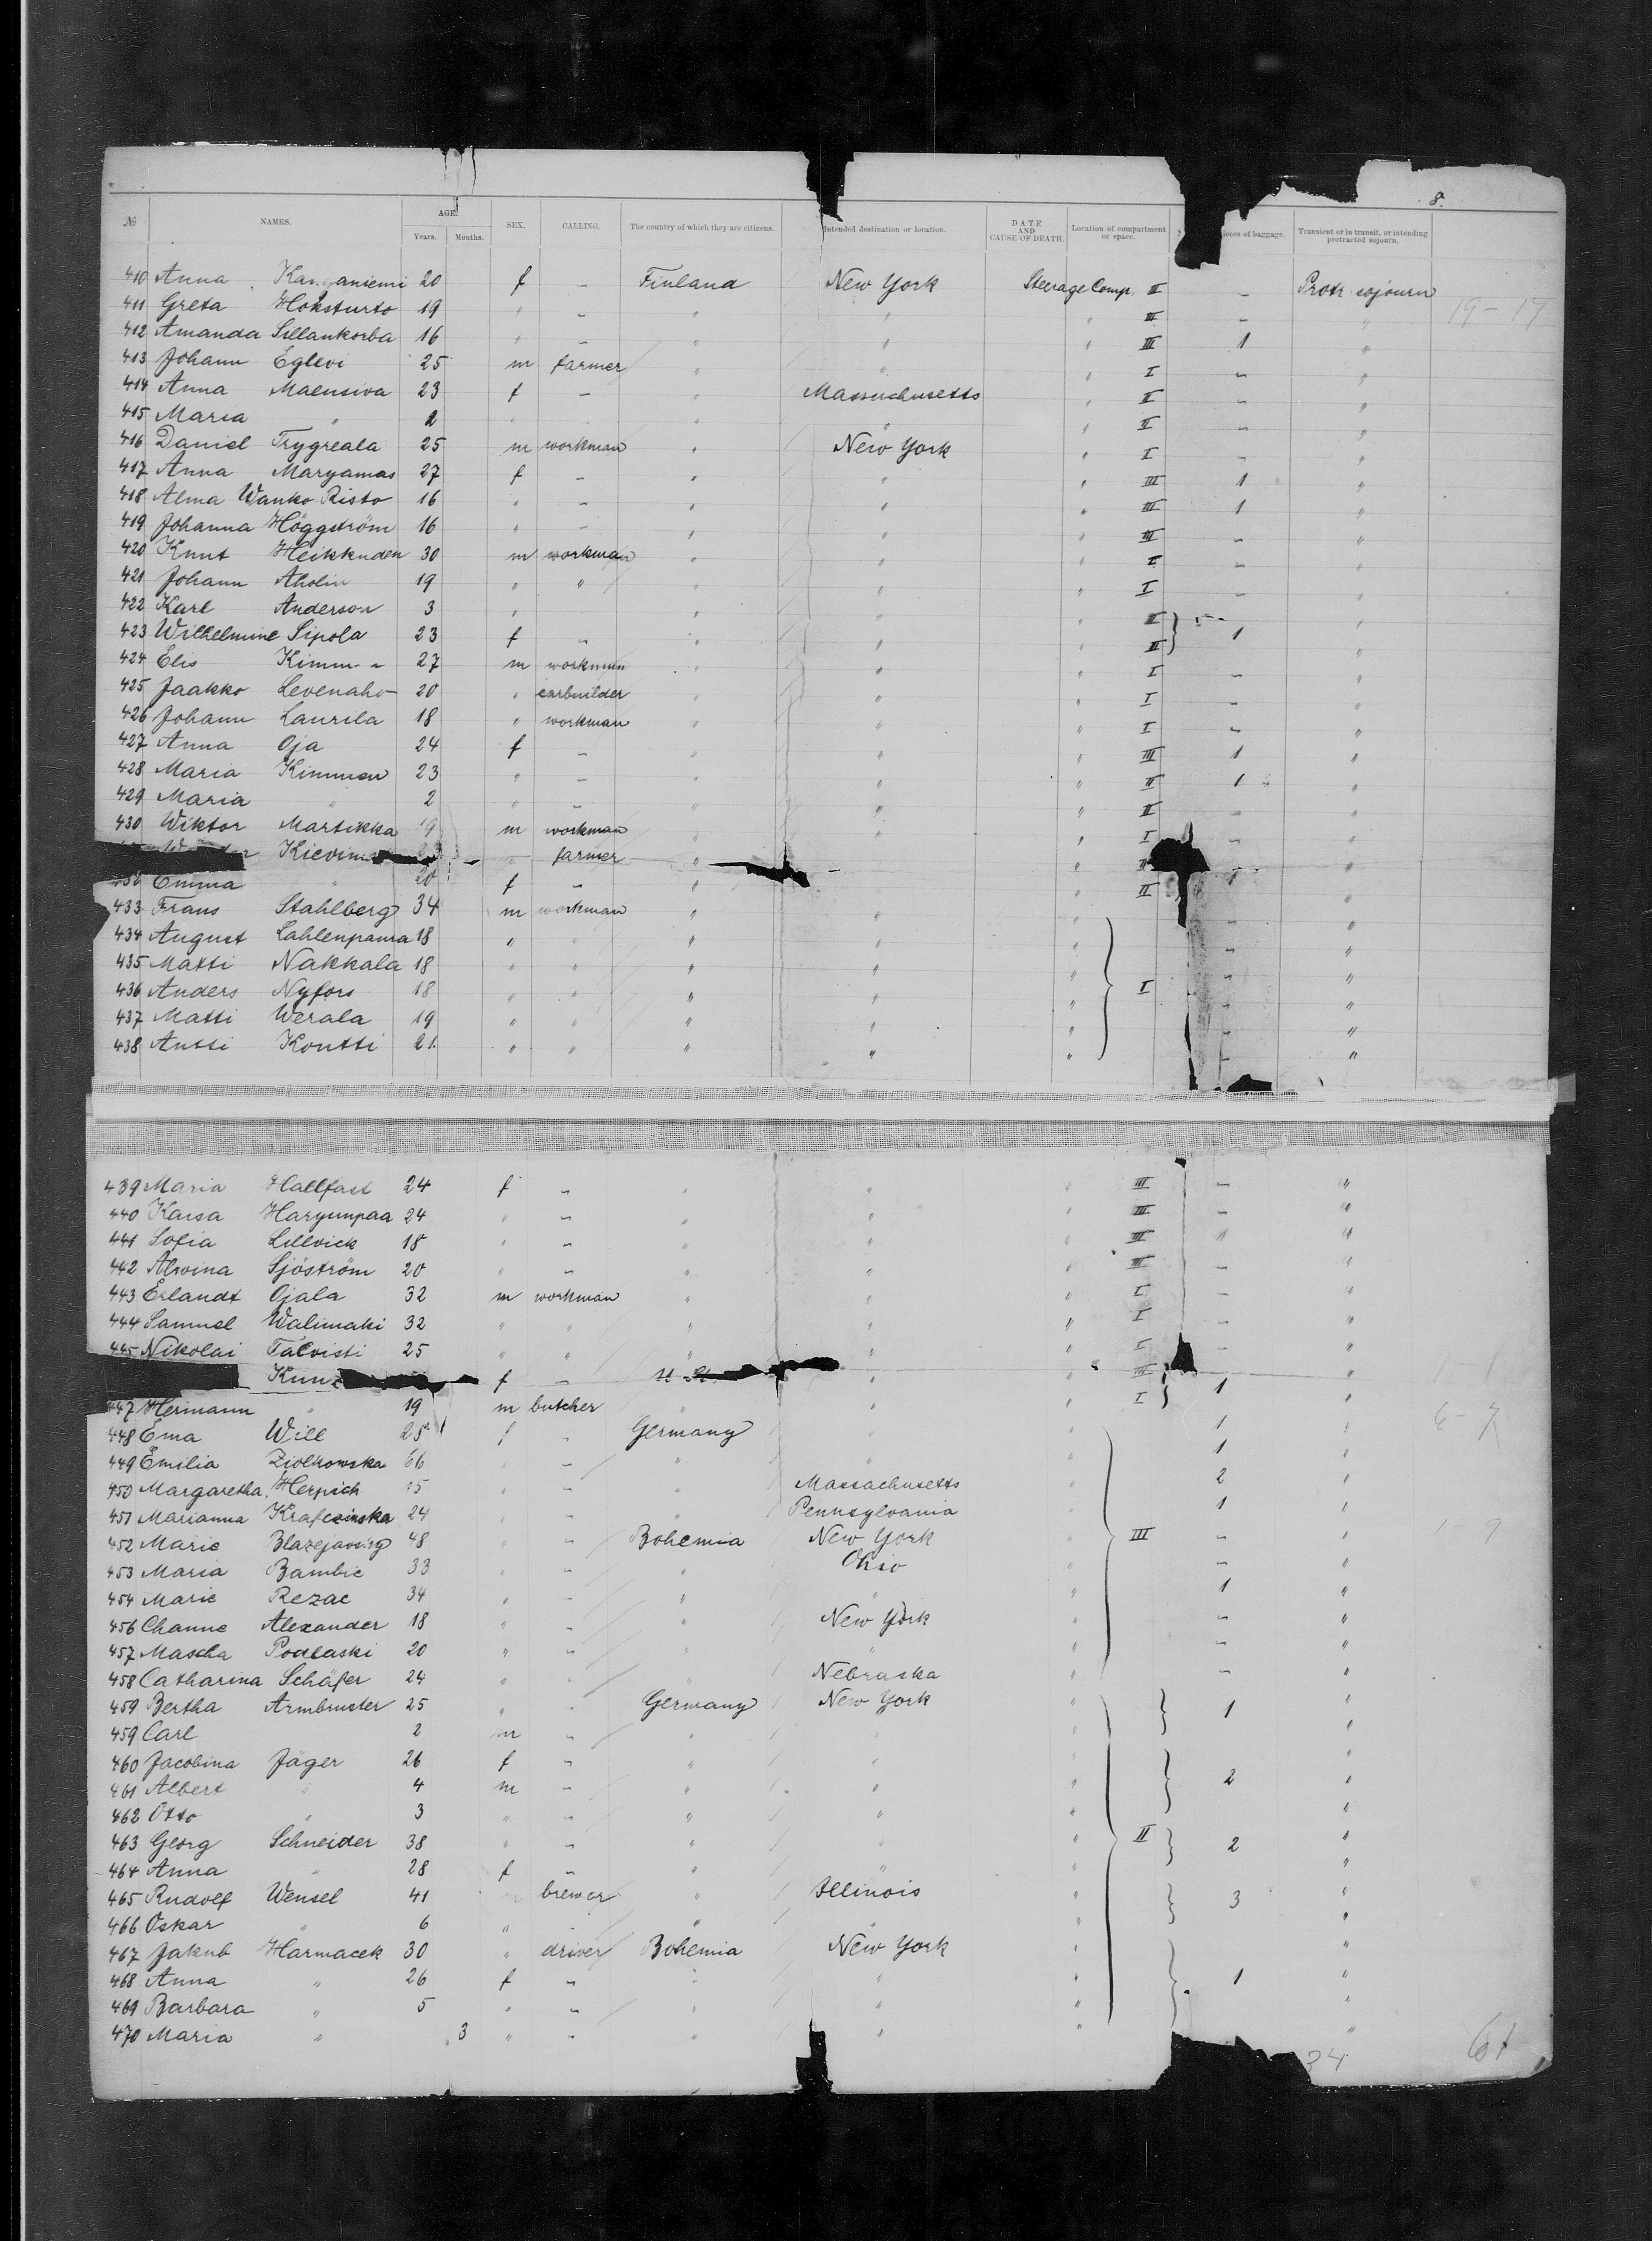 8.
№ NAMES. AGE. Years. Months. SEX. CALLING. The country of which they are citizens. Intended destination or location. DATE AND CAUSE OF DEATH. Location of compartment or space. pieces of baggage. Transient or in transit, or intending protracted sojourn.
410 Anna 20 f – Finland New York Steerage Comp. II – Protr sojourn
411 Greta Hoksturto 19 " – " " " III – " 19-17
412 Amanda Sillankorba 16 " – " " " III 1 "
413 Johann Eglevi 25 m farmer " " " I – "
414 Anna Maensiva 23 f – " Massachusetts " II – "
415 Maria " 2 " " " " " II – "
416 Daniel Trygreala 25 m workman " New York " I – "
417 Anna Maryamas 27 f – " " " III 1 "
418 Alma Wanko Risto 16 " – " " " III 1 "
419 Johanna Höggström 16 " – " " " III – "
420 Knut Heikknden 30 m workman " " " I – "
421 Johann Aholin 19 " " " " " I – "
422 Karl Anderson 3 " " " " II "
423 Wilhelmine Sipola 23 f – " " " II 1 "
424 Elis 27 m workman " " " I – "
425 Jaakko Levenaho 20 " carbuilder " " " I – "
426 Johann Laurila 18 " workman " " " I – "
427 Anna Oja 24 f – " " " III 1 "
428 Maria Kimmen 23 " – " " " II 1 "
429 Maria " 2 " – " " " II "
430 Wiktor Martikka 19 m workman " " " I – "
23 " farmer " " "
432 Emma " 20 f – " " II 1 "
433 Frans Stahlberg 34 m workman " " " "
434 August Lahlenpaura 18 " " " " " – "
435 Matti Nakkala 18 " " " " " – "
436 Anders Nyfors 18 " " " " " I – "
437 Matti Werala 19 " " " " " – "
438 Antti Kontti 21 " " " " " – "
439 Maria Hallfast 24 f – " " " III – "
440 Kaisa Haryunpaa 24 " – " " " III – "
441 Sofia Lillvick 18 " – " " " III 1 "
442 Alwina Sjöström 20 " – " " " III – "
443 Erlandt Ojala 32 m workman " " " I – "
444 Samuel Walimaki 32 " " " " " I – "
445 Nikolai Talvisti 25 " " " " " I – "
f – " " III "
447 Hermann " 19 m butcher " " " I 1 "
448 Ema Will 28 f – Germany " " 1 " 6-7
449 Emilia Ziolkowska 66 " – " " " 1 "
450 Margaretha Herpich " – " Massachusetts " 2 "
451 Marianna Krafczinska 24 " – " Pennsylvania " 1 "
452 Marie 48 " – Bohemia New York " III – " 1-9
453 Maria Bambic 33 " – " Ohio " – "
454 Marie Rezac 34 " – " " " 1 "
456 Channe Alexander 18 " – " New York " – "
457 Mascha Podlaski 20 " – " " " – "
458 Catharina Schäfer 24 " – " Nebraska " – "
459 Bertha Armbruster 25 " – Germany New York " 1 "
459 Carl 2 m – " " " "
460 Jacobina Jäger 26 f – " " " "
461 Albert " 4 m – " " " 2 "
462 Otto " 3 " – " " " "
463 Georg Schneider 38 " – " " " II 2 "
464 Anna " 28 f – " " " "
465 Rudolf Wensel 41 m brewer " Illinois " 3 "
466 Oskar " 6 " " " " "
467 Jakub Harmacek 30 " driver Bohemia New York " "
468 Anna " 26 f – " " " 1 "
469 Barbara " 5 " – " " " "
470 Maria " 3 " – " " " "
34 61